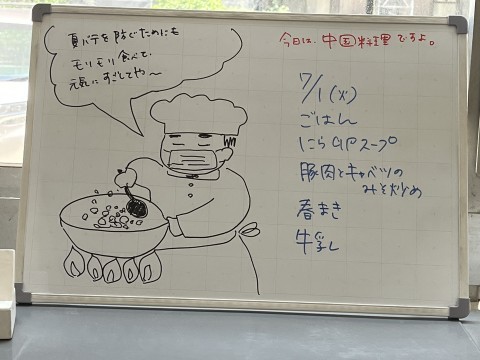 夏バテを防ぐためにも
モリモリ食べて、
元気にすごしてや〜
今日は、中国料理ですよ。
7/1(火)
ごはん
にら卵スープ
豚肉とキャベツの
みそ炒め
春まき
牛乳